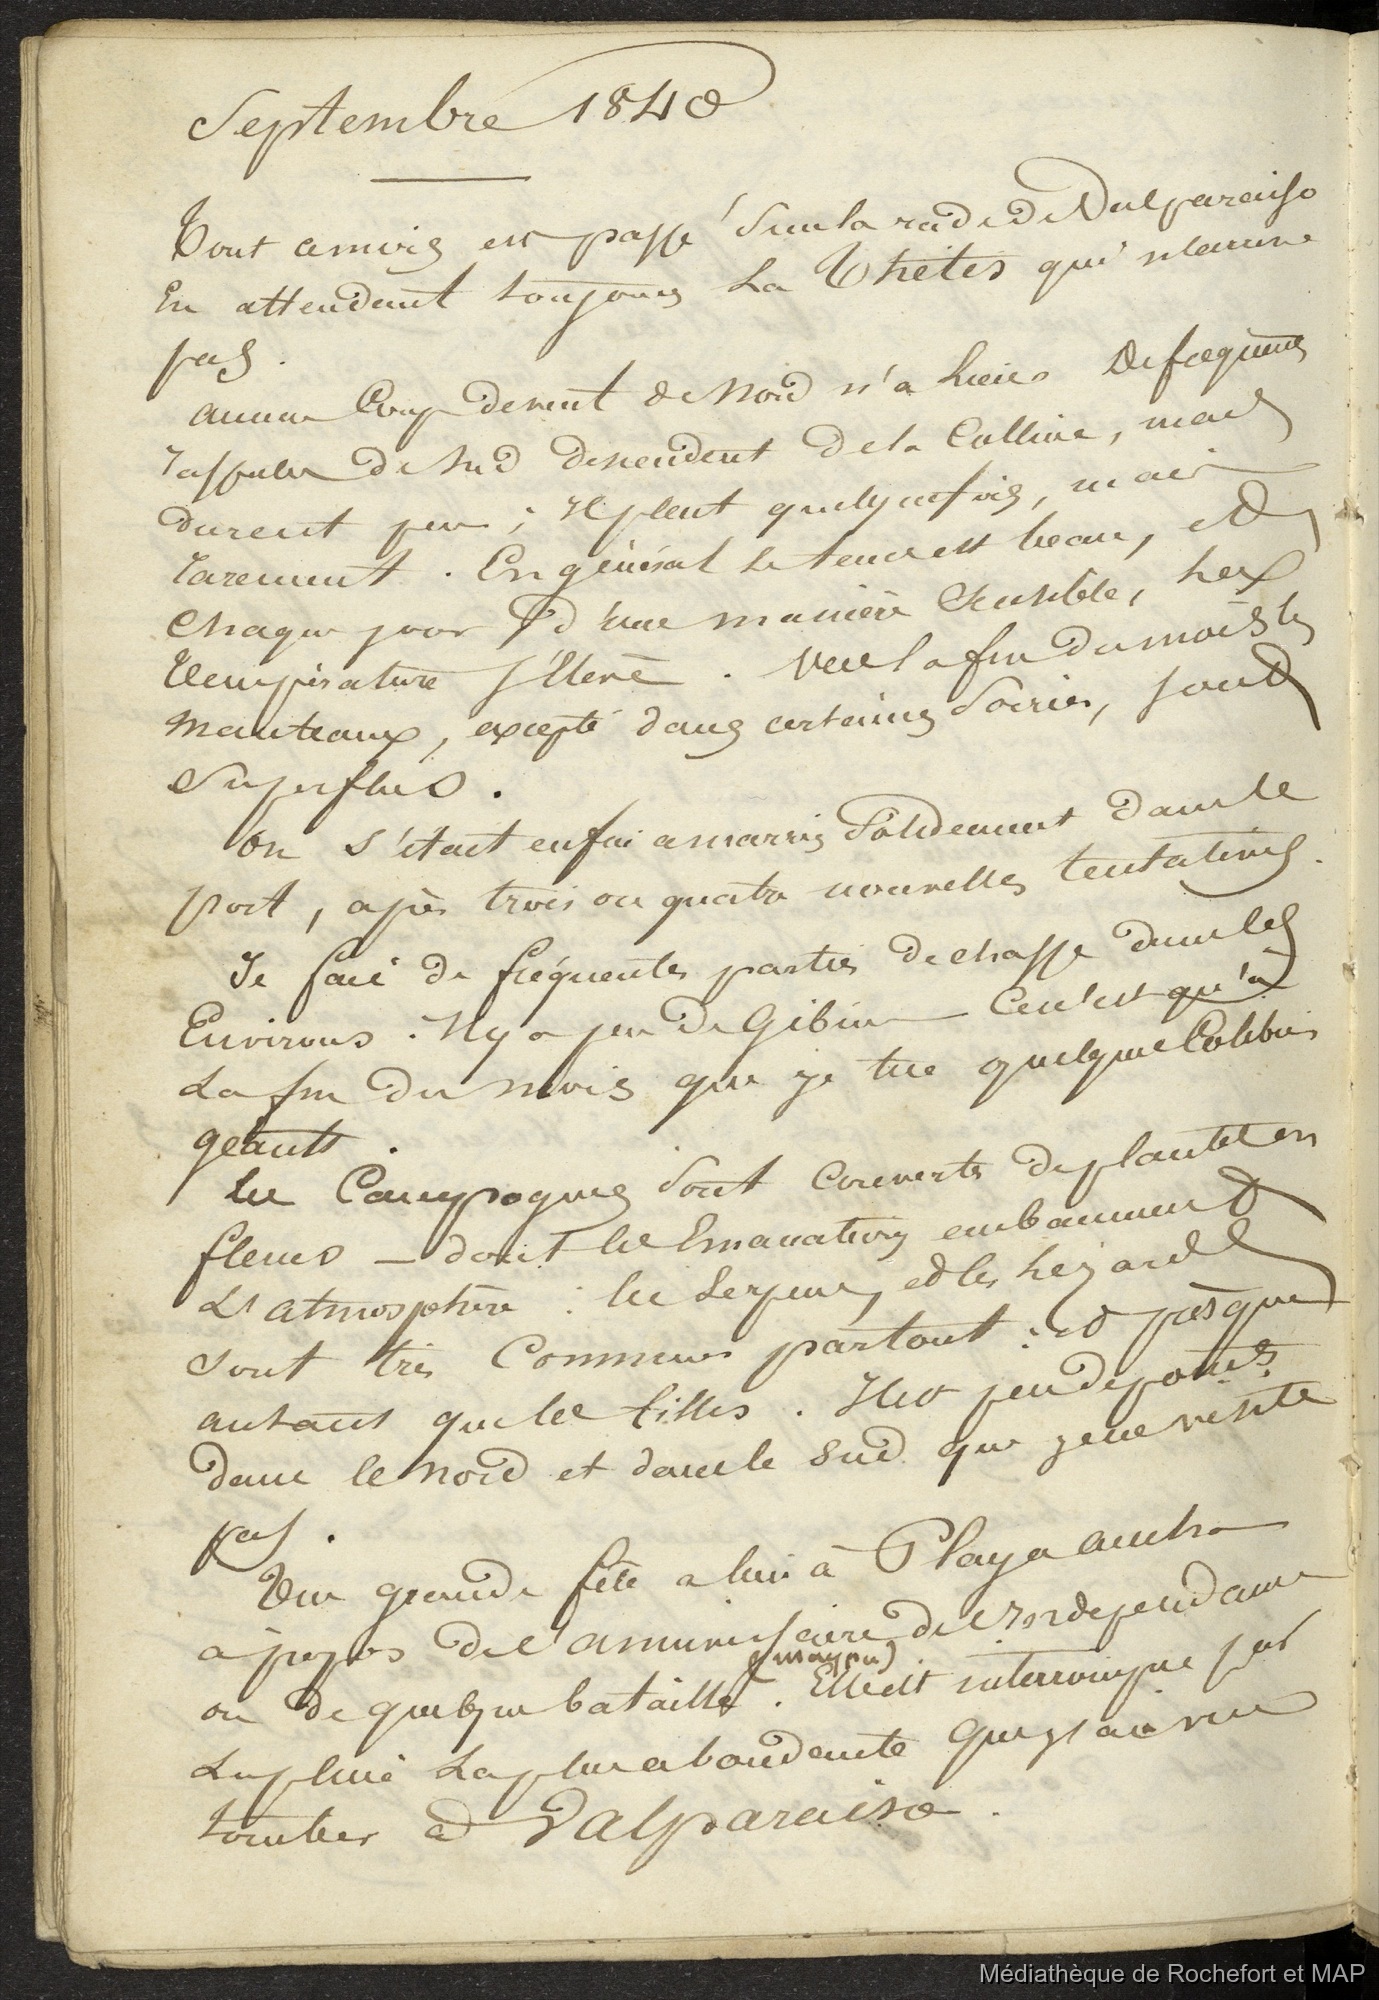 Septembre 1848
Tout ce mois est passé sur la rade de Valparaiso
En attendant toujours La Thétis qui n'arrive
pas.
aucun Coup de vent de Nord n'a lieu. De fréquentes
rafales de Sud descendent de la Colline, mais
durent peu ; Il pleut quelquefois, mais
rarement. En général le tems est beau, et
chaque jour et d'une manière sensible, la
Température s'élève. Vers la fin du mois les
Manteaux, excepté dans certaines Soirées, sont
Superflus.
On s'était enfin amarrés Solidement dans le
port, après trois ou quatre nouvelles tentatives.
Je fais de fréquentes parties de chasse dans les
Environs. Il y a peu de Gibier Ce n'est qu'à
La fin du mois que je tue quelques Colibris
géants.
Les Campagnes Sont Couvertes de plantes en
fleurs — dont les Emanations embaument
L'atmosphère : les Serpens, et les Lézards
sont très Communs partout : et presque
autant que les filles. Il est peu de points
dans le Nord et dans le Sud que je ne visite
pas.
Une grande fête a lieu à Playa ancha
à propos de l'anniversaire de l'Indépendance
ou de quelque bataille (maypu). Elle est interrompue par
La pluie La plus abondante que j'ai vue
tomber à Valparaiso.
Médiathèque de Rochefort et MAP